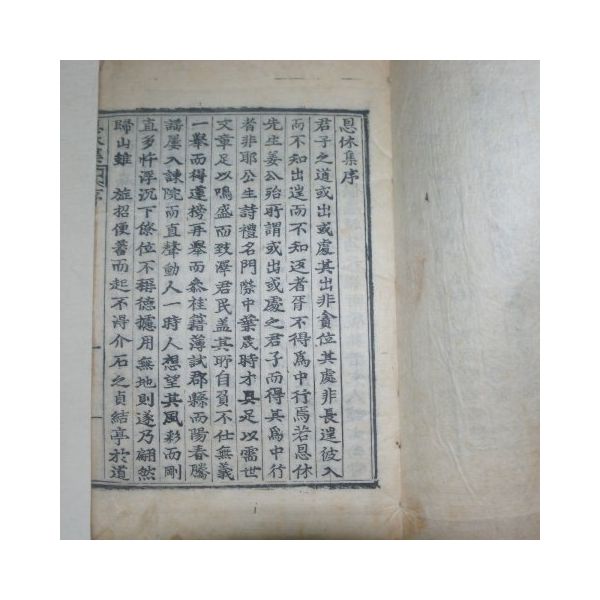 恩休集序
君子之道或出或處其出非貪位其處非長逞彼入
而不知出逞而不知返者胥不得為中行焉若恩休
先生姜公殆所謂或出或處之君子而得其為中行
者非耶公生詩禮名門弊中葉晟時才具足以需世
文章足以鳴盛而致澤君民盖其所自負不仕無義
一舉而得蓮榜再舉而叅桂籍薄試郡縣而陽春騰
謠屢入諫院而直聲動人一時人想望其風彩而剛
直多忤浮沉下僚位不稱德擄用無地則遂乃翩然
歸山雖 旌招便蕃而起不得介石之貞結亭於道